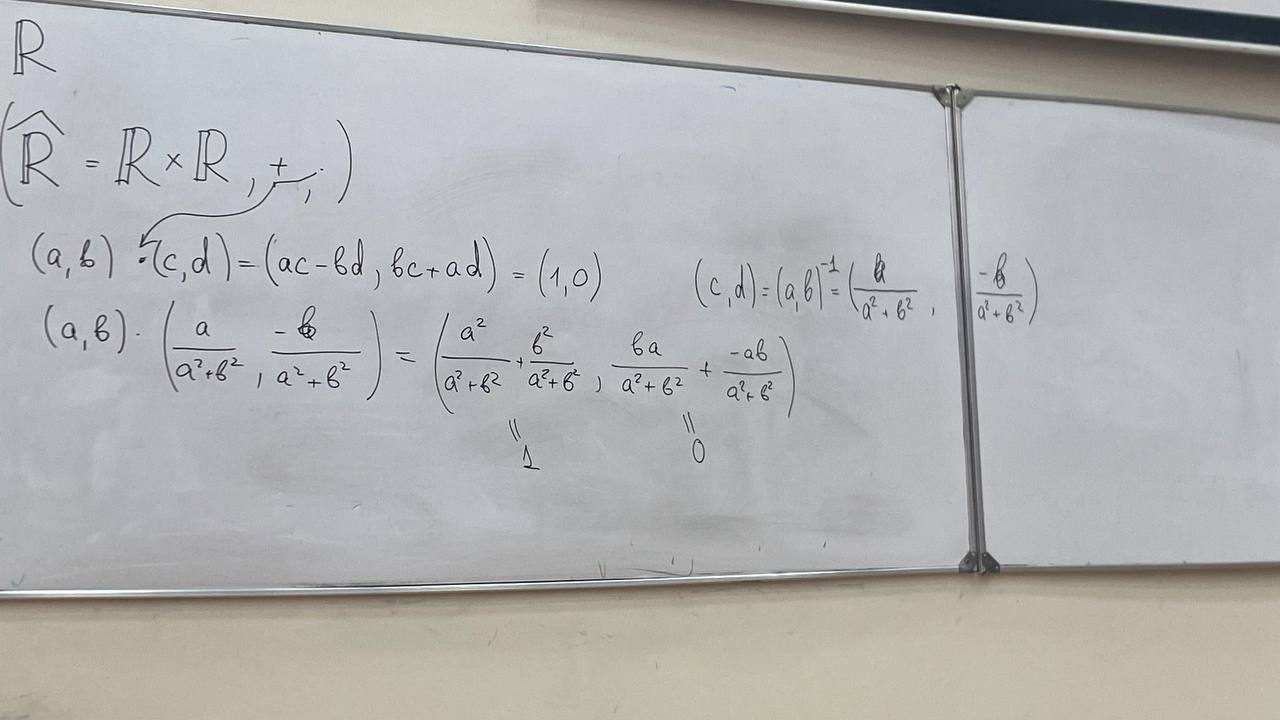 ℝ
(ℝ̂ = ℝ × ℝ, +, ·)
(a,b) · (c,d) = (ac-bd, bc+ad) = (1,0) (c,d) = (a,b)⁻¹ = (a/(a²+b²), -b/(a²+b²))
(a,b) · (a/(a²+b²), -b/(a²+b²)) = (a²/(a²+b²) + b²/(a²+b²), ba/(a²+b²) + -ab/(a²+b²))
= =
1 0